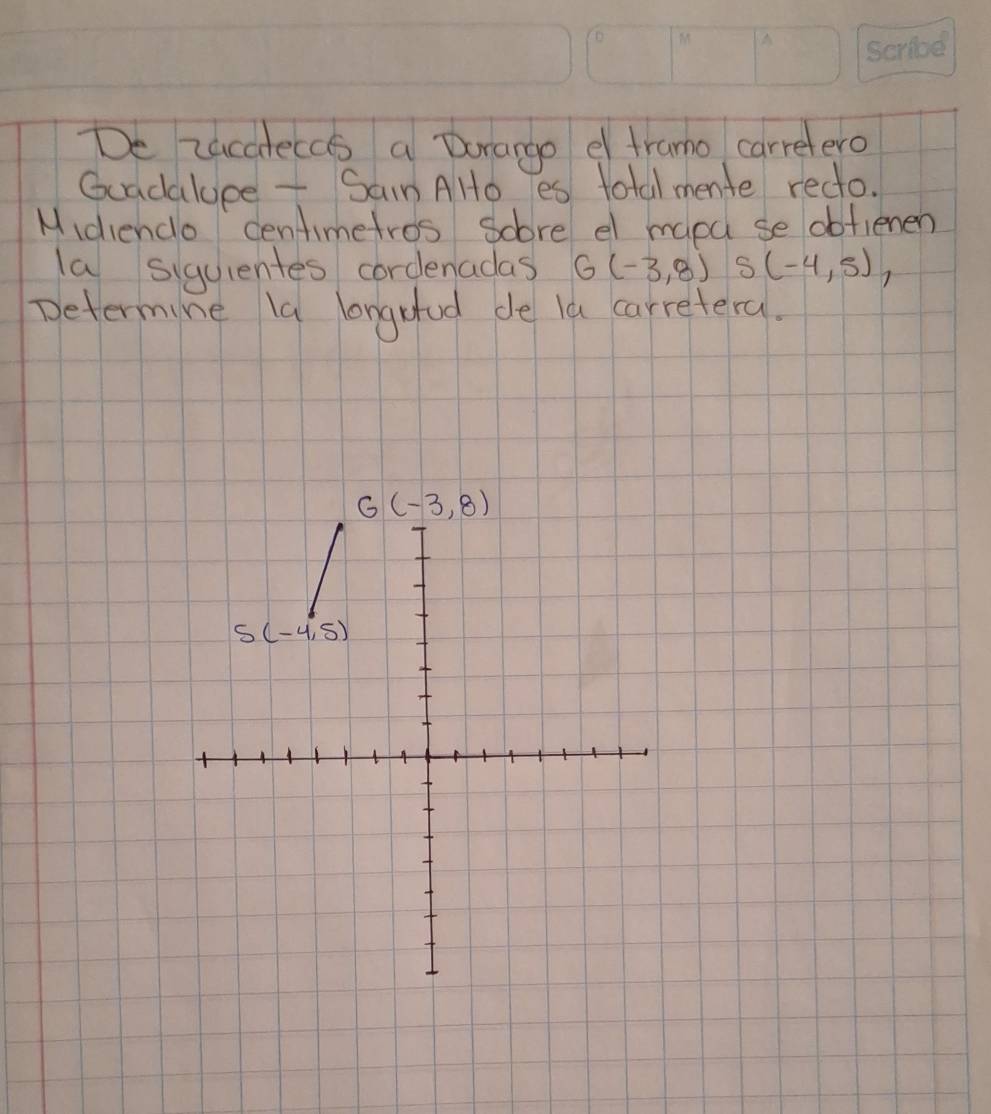 D M A Scribe
De zacatecas a Durango el tramo carretero
Guadalupe - Sain Alto es totalmente recto.
Midiendo centimetros sobre el mapa se obtienen
la siguientes cordenadas G(-3,8) S(-4,5),
Determine la longitud de la carretera.
G(-3,8)
S(-4,5)